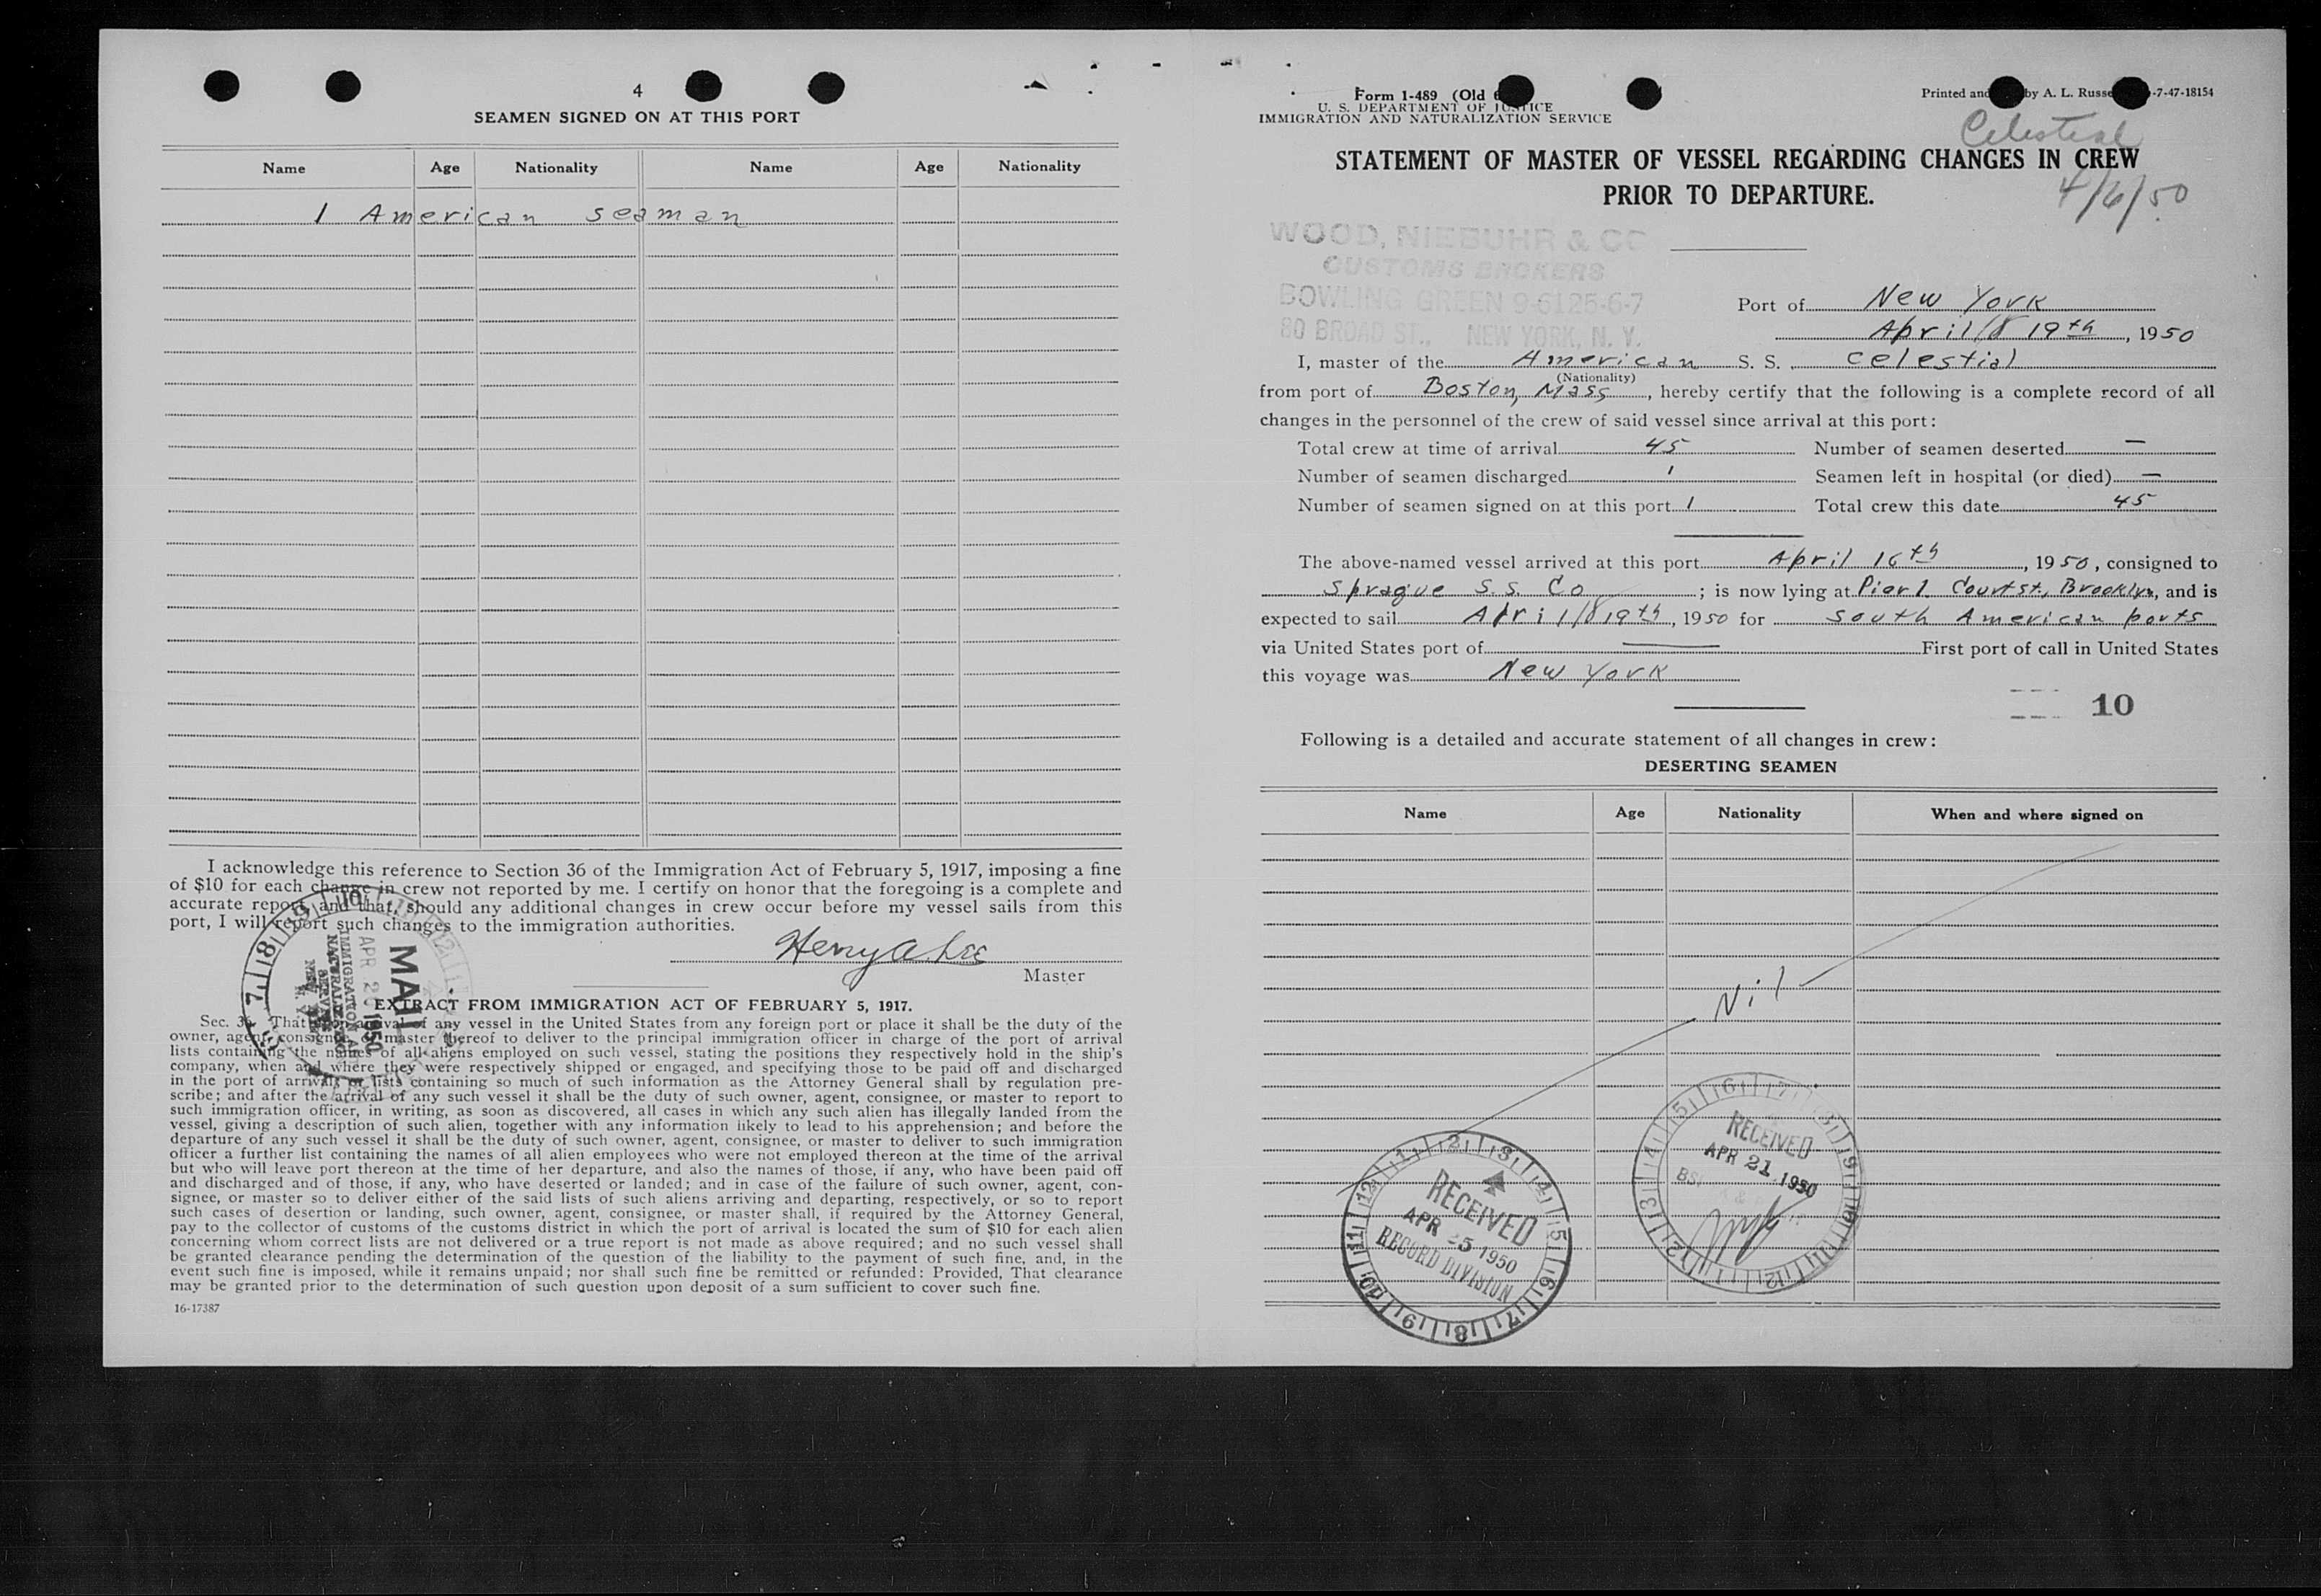 4
SEAMEN SIGNED ON AT THIS PORT
Name Age Nationality Name Age Nationality
1 American seaman
I acknowledge this reference to Section 36 of the Immigration Act of February 5, 1917, imposing a fine
of $10 for each change in crew not reported by me. I certify on honor that the foregoing is a complete and
accurate report and that, should any additional changes in crew occur before my vessel sails from this
port, I will report such changes to the immigration authorities.
Henry A. Lee
Master
MAIL
APR 20 1950
IMMIGRATION AND
NATURALIZATION
SERVICE
EXTRACT FROM IMMIGRATION ACT OF FEBRUARY 5, 1917.
Sec. 36. That upon arrival of any vessel in the United States from any foreign port or place it shall be the duty of the
owner, agent, consignee, or master thereof to deliver to the principal immigration officer in charge of the port of arrival
lists containing the names of all aliens employed on such vessel, stating the positions they respectively hold in the ship's
company, when and where they were respectively shipped or engaged, and specifying those to be paid off and discharged
in the port of arrival; or lists containing so much of such information as the Attorney General shall by regulation pre-
scribe; and after the arrival of any such vessel it shall be the duty of such owner, agent, consignee, or master to report to
such immigration officer, in writing, as soon as discovered, all cases in which any such alien has illegally landed from the
vessel, giving a description of such alien, together with any information likely to lead to his apprehension; and before the
departure of any such vessel it shall be the duty of such owner, agent, consignee, or master to deliver to such immigration
officer a further list containing the names of all alien employees who were not employed thereon at the time of the arrival
but who will leave port thereon at the time of her departure, and also the names of those, if any, who have been paid off
and discharged and of those, if any, who have deserted or landed; and in case of the failure of such owner, agent, con-
signee, or master so to deliver either of the said lists of such aliens arriving and departing, respectively, or so to report
such cases of desertion or landing, such owner, agent, consignee, or master shall, if required by the Attorney General,
pay to the collector of customs of the customs district in which the port of arrival is located the sum of $10 for each alien
concerning whom correct lists are not delivered or a true report is not made as above required; and no such vessel shall
be granted clearance pending the determination of the question of the liability to the payment of such fine, and, in the
event such fine is imposed, while it remains unpaid; nor shall such fine be remitted or refunded: Provided, That clearance
may be granted prior to the determination of such question upon deposit of a sum sufficient to cover such fine.
16-17387
Form 1-489 (Old
U. S. DEPARTMENT OF JUSTICE
IMMIGRATION AND NATURALIZATION SERVICE
Printed and by A. L. Russe -7-47-18154
Celestial
STATEMENT OF MASTER OF VESSEL REGARDING CHANGES IN CREW
PRIOR TO DEPARTURE.
4/6/50
WOOD, NIEBUHR & CO
CUSTOMS BROKERS
BOWLING GREEN 9-6125-6-7
80 BROAD ST., NEW YORK, N. Y.
Port of New York
April 19th, 1950
I, master of the American S. S. Celestial
(Nationality)
from port of Boston, Mass, hereby certify that the following is a complete record of all
changes in the personnel of the crew of said vessel since arrival at this port:
Total crew at time of arrival 45 Number of seamen deserted —
Number of seamen discharged 1 Seamen left in hospital (or died) —
Number of seamen signed on at this port 1 Total crew this date 45
The above-named vessel arrived at this port April 16th, 1950, consigned to
Sprague S. S. Co; is now lying at Pier 1 Court st., Brooklyn, and is
expected to sail April 19th, 1950 for South American ports
via United States port of — First port of call in United States
this voyage was New York
10
Following is a detailed and accurate statement of all changes in crew:
DESERTING SEAMEN
Name Age Nationality When and where signed on
Nil
RECEIVED
APR 21 1950
RECEIVED
APR 25 1950
RECORD DIVISION